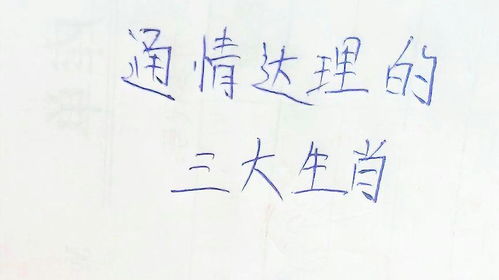 通情达理的
三大生肖